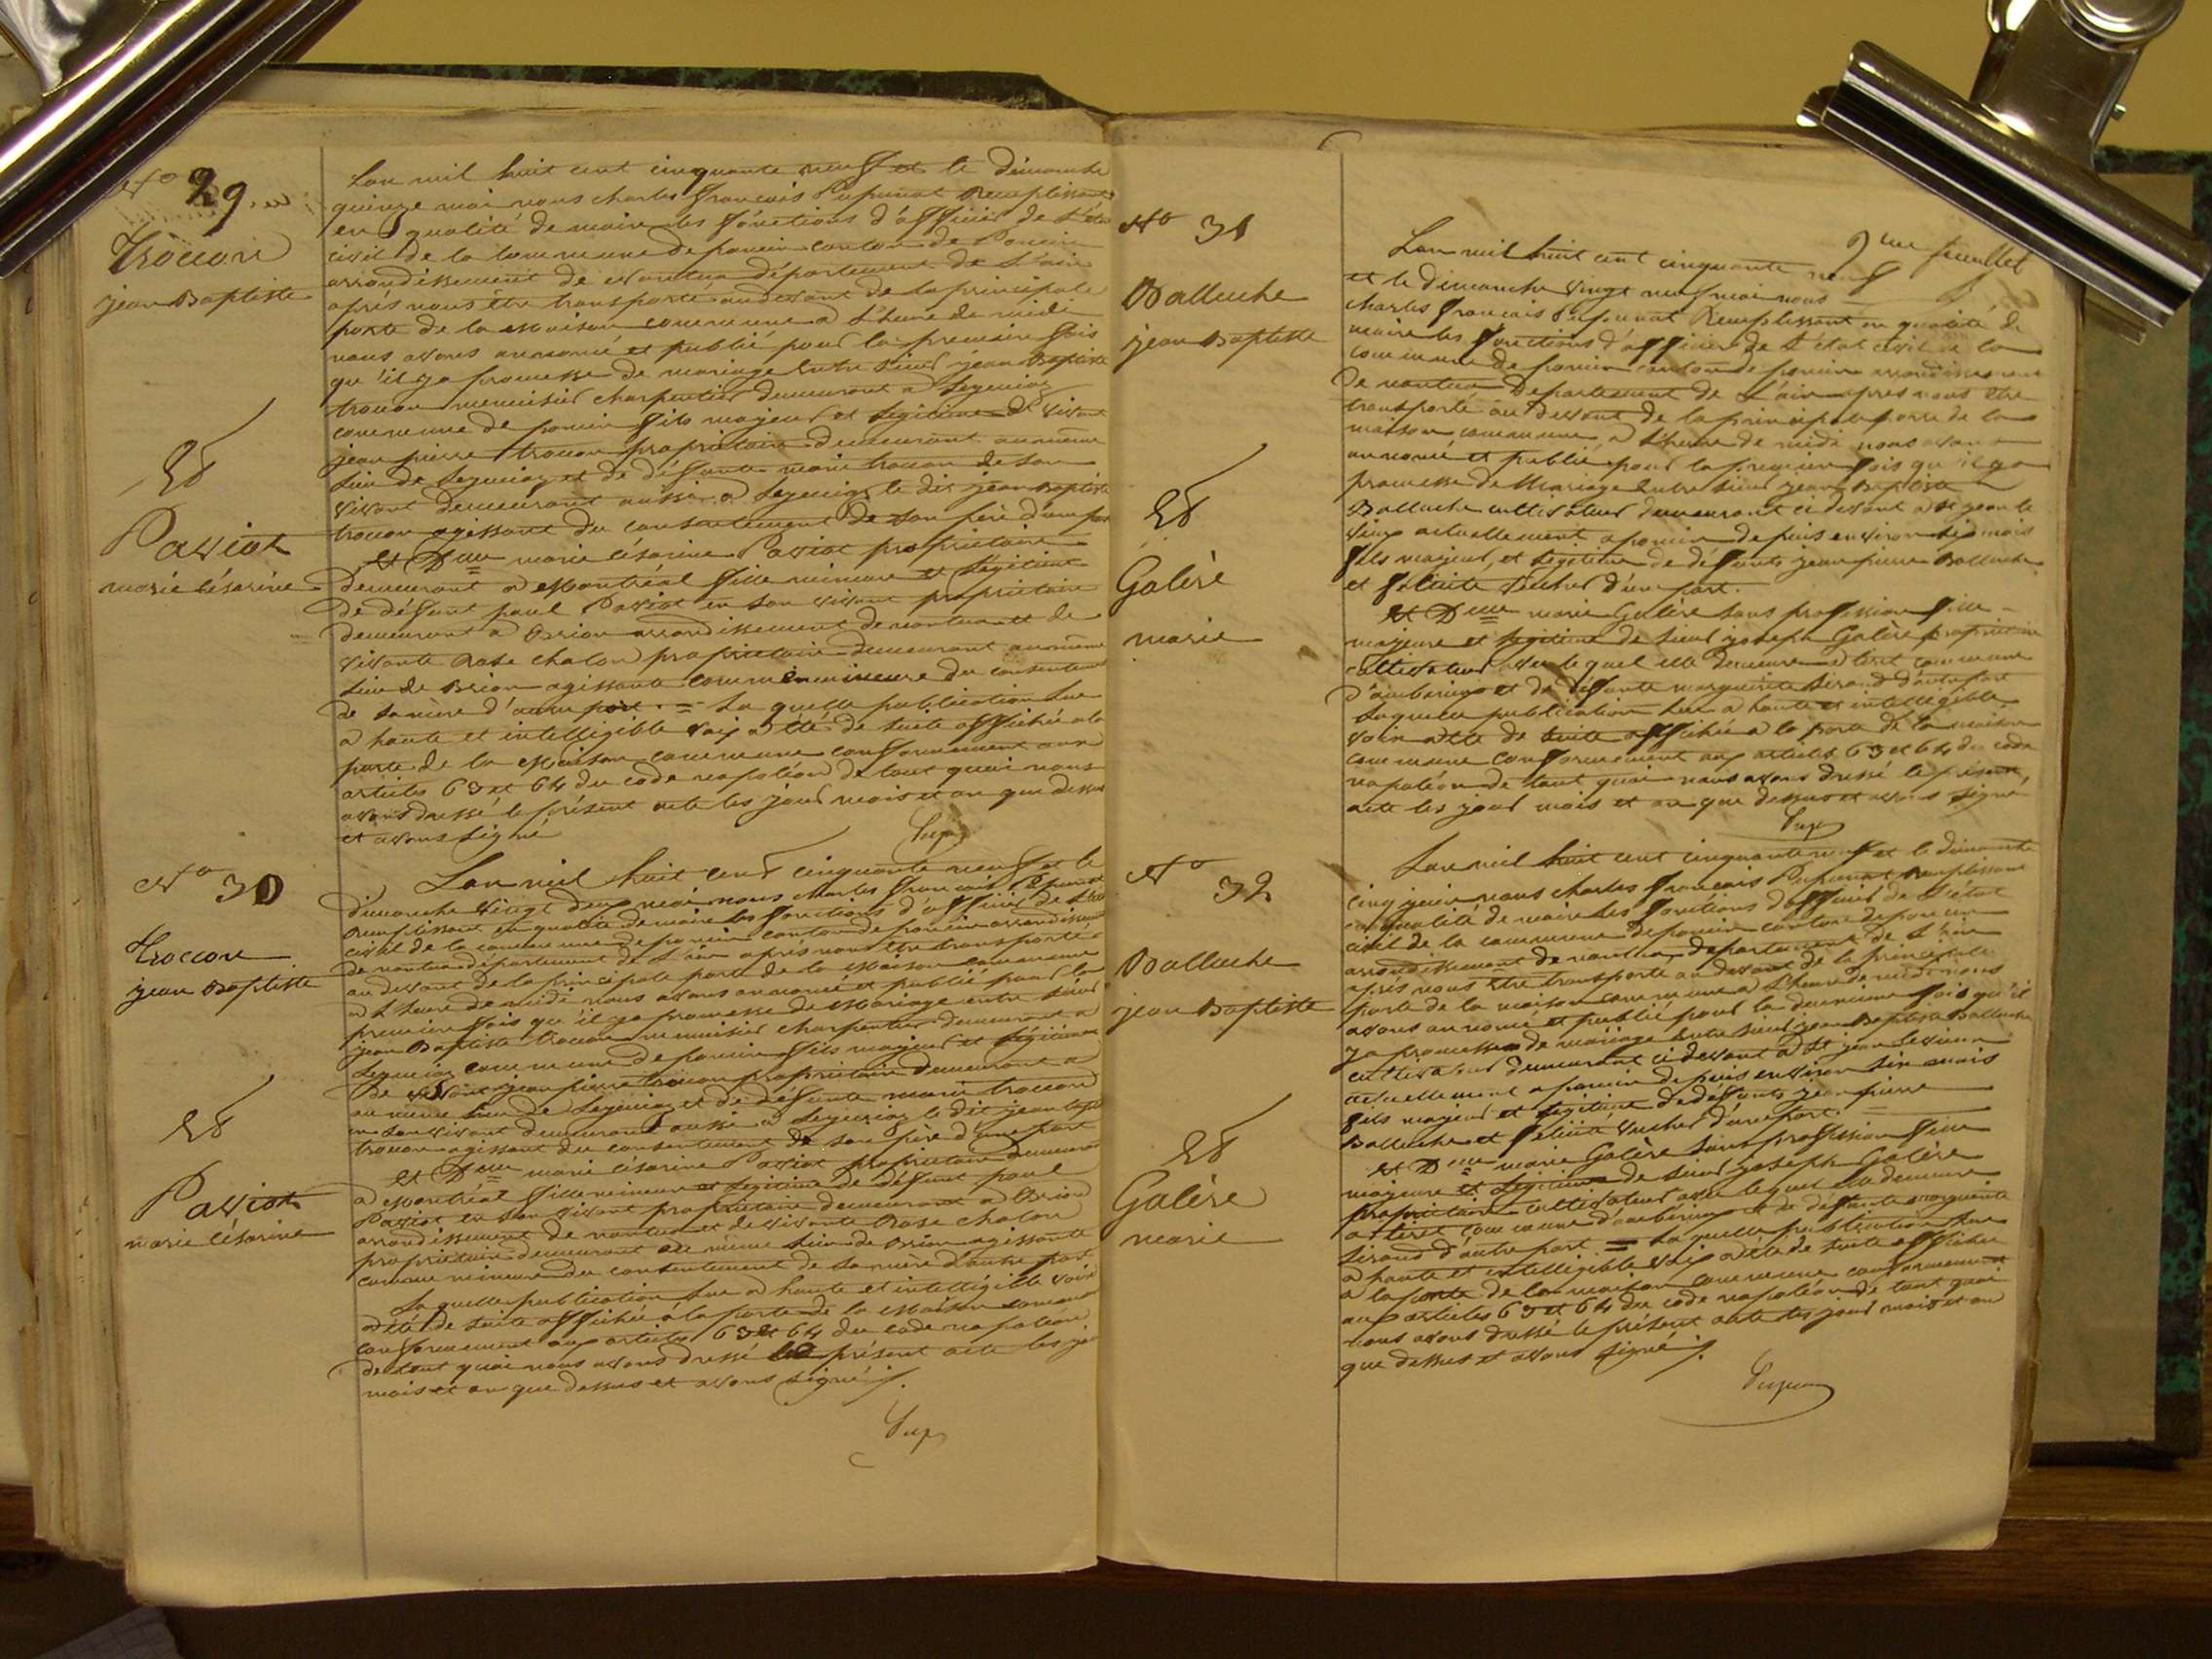 No 29
Troccon
jean Baptiste
Et
Paviot
marie Césarine
Lan mil huit cent cinquante neuf et le dimanche
quinze mai nous charles francois Pupunat Remplissant
en qualité de maire les fonctions d'officier de l'état
civil de la commune de poncin canton de Poncin
arrondissement de nantua département de l'ain
après nous être transporté audevant de la principale
porte de la Maison commune a l'heure de midi
nous avons annoncé et publié pour la premiere fois
qu'il ya promesse de mariage Entre sieur jean Baptiste
trocon menuisier charpentier demeurant a
commune de poncin fils majeur et légitime de vivant
jean pierre trocon propriétaire demeurant au même
lieu de et de défunte marie trocon de son
vivant demeurant aussi a le dit jean Baptiste
trocon agissant du consentement de son père d'une part
et Dlle marie césarine Paviot propriétaire
demeurant a Montréal fille mineure et légitime
de défunt paul Paviot en son vivant propriétaire
demeurant a Brion arrondissement de nantua et de
vivante Rose chalon propriétaire demeurant au même
lieu de Brion agissante comme mineure du consentement
de sa mère d'autre part. = La quelle publication lue
a haute et intelligible voix a été de suite affichée a la
porte de la Maison commune conformement aux
articles 63 et 64 du code napoléon de tout quoi nous
avons dressé le présent acte les jour mois et an que dessus
et avons signé
Pup
No 30
Troccon
jean Baptiste
Et
Paviot
marie Césarine
Lan mil huit cent cinquante neuf et le
dimanche vingt deux mai nous charles francois Pupunat
Remplissant en qualité de maire les fonctions d'officier de l'état
civil de la commune de poncin canton de poncin arrondissement
de nantua département de l'ain après nous être transporté
au devant de la principale porte de la Maison commune
a l'heure de midi nous avons annoncé et publié pour la
premiere fois qu'il ya promesse de Mariage entre sieur
jean Baptiste trocon menuisier charpentier demeurant a
commune de poncin fils majeur et légitime
de vivant jean pierre trocon propriétaire demeurant a
au même lieu de et de défunte marie troccon
en son vivant demeurant aussi a le dit jean bapt
trocon agissant du consentement de son père d'une part
et Dlle marie césarine Paviot propriétaire demeurant
a Montréal fille mineure et légitime de défunt paul
Paviot en son vivant propriétaire demeurant a Brion
arrondissement de nantua et de vivante Rose chalon
propriétaire demeurant au même lieu de Brion agissante
comme mineure du consentement de sa mère d'autre part
La quelle publication lue a haute et intelligible voix
a été de suite affichée à la porte de la Maison commune
conformement aux articles 63 et 64 du code napoléon
de tout quoi nous avons dressé le présent acte les jour
mois et an que dessus et avons signé ./.
Pup
No 31
Balluche
jean Baptiste
Et
Galère
marie
9me feuillet
Lan mil huit cent cinquante neuf
et le dimanche vingt neuf mai nous
charles francois Pupunat Remplissant en qualité de
maire les fonctions d'officier de l'état civil de la
commune de poncin canton de poncin arrondissement
de nantua Departement de l'ain apres nous être
transporté au devant de la principale porte de la
maison commune, a l'heure de midi nous avons
annoncé et publié pour la premiere fois qu'il ya
promesse de Mariage Entre sieur jean Baptiste
Balluche cultivateur demeurant ci devant a St jean le
vieux actuellement a poncin depuis environ six mois
fils majeur, et légitime de défunts jean pierre Balluche
et félicité d'une part.
et Dlle marie Galère sans profession fille
majeure et légitime de sieur joseph Galère propriétaire
cultivateur avec lequel elle demeure a commune
d'ambérieux et de défunte marguerite Sirand d'autre part
Laquelle publication lue a haute et intelligible
voix a été de suite affichée a la porte de la maison
commune conformement aux articles 63 et 64 du code
napoléon de tout quoi nous avons dressé le présent,
acte les jour mois et an que dessus et avons signé
Pup
No 32
Balluche
jean Baptiste
Et
Galère
marie
Lan mil huit cent cinquante neuf et le dimanche
cinq juin nous charles francois Pupunat Remplissant
en qualité de maire les fonctions d'officier de l'état
civil de la commune de poncin canton de poncin
arrondissement de nantua departement de l'ain
après nous être transporté au devant de la principale
porte de la maison commune a l'heure de midi nous
avons annoncé et publié pour la deuxieme fois qu'il
ya promesse de mariage entre sieur jean Baptiste Balluche
cultivateur demeurant ci devant a St jean le vieux
actuellement a poncin depuis environ six mois
fils majeur et légitime de défunts jean pierre
Balluche et félicité d'une part. =
et Dlle marie Galère sans profession fille
majeure et légitime de sieur joseph Galère
propriétaire cultivateur avec lequel elle demeure
a commune d'ambérieux et de défunte marguerite
Sirand d'autre part = La quelle publication lue
a haute et intelligible voix a été de suite affichée
a la porte de la maison commune conformement
aux articles 63 et 64 du code napoléon de tout quoi
nous avons dressé le présent acte les jour mois et an
que dessus et avons signé ./.
Pupunat